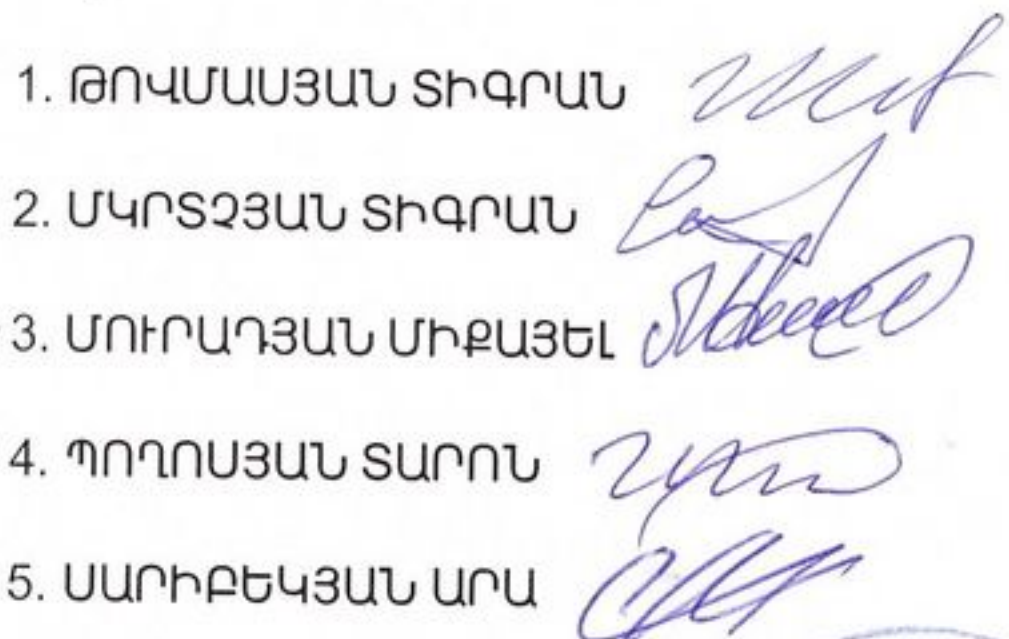 1. ԹՈՎՄԱՍՅԱՆ ՏԻԳՐԱՆ
2. ՄԿՐՏՉՅԱՆ ՏԻԳՐԱՆ
3. ՄՈՒՐԱԴՅԱՆ ՄԻՔԱՅԵԼ
4. ՊՈՂՈՍՅԱՆ ՏԱՐՈՆ
5. ՍԱՐԻԲԵԿՅԱՆ ԱՐԱ